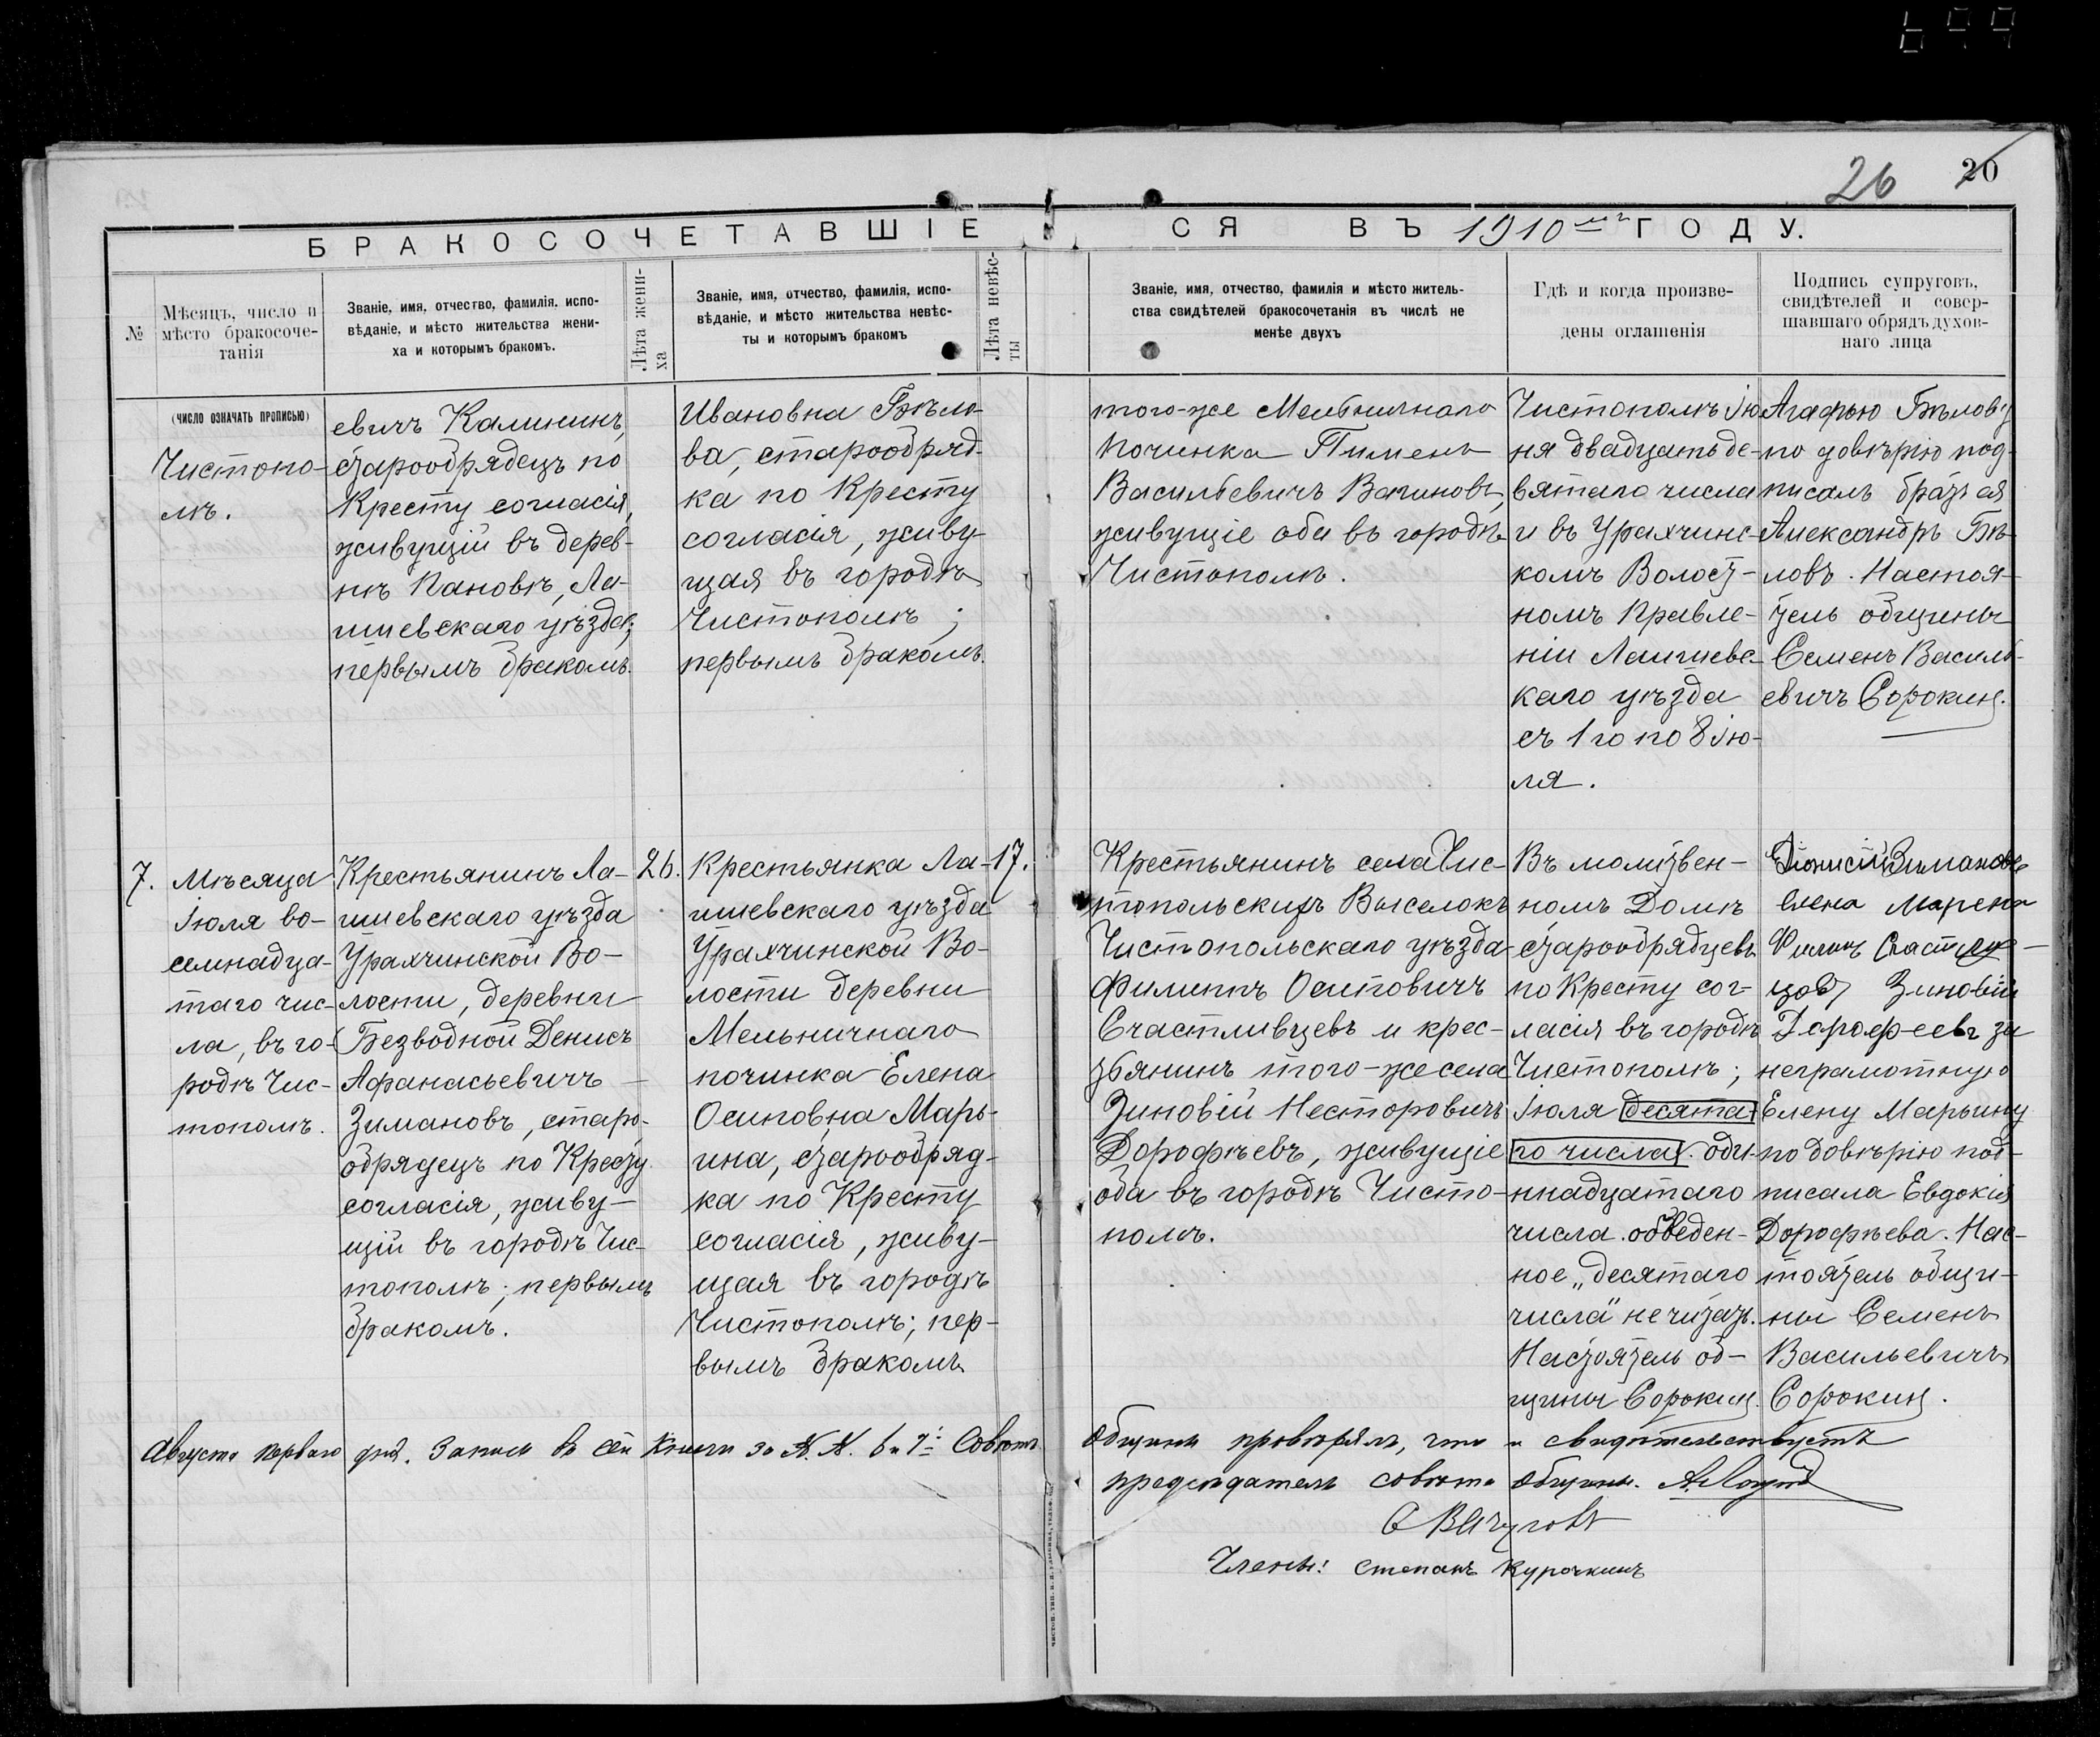 26 20
БРАКОСОЧЕТАВШІЕСЯ ВЪ 1910 мъ ГОДУ.
№
Мѣсяцъ, число и
мѣсто бракосоче-
танія
Званіе, имя, отчество, фамилія, испо-
вѣданіе, и мѣсто жительства жени-
ха и которымъ бракомъ.
Лѣта жени-
ха
Званіе, имя, отчество, фамилія, испо-
вѣданіе, и мѣсто жительства невѣс-
ты и которымъ бракомъ
Лѣта невѣс-
ты
Званіе, имя, отчество, фамилія и мѣсто житель-
ства свидѣтелей бракосочетанія въ числѣ не
менѣе двухъ
Гдѣ и когда произве-
дены оглашенія
Подпись супруговъ,
свидѣтелей и совер-
шавшаго обрядъ духов-
наго лица
(ЧИСЛО ОЗНАЧАТЬ ПРОПИСЬЮ)
Чистопо-
лѣ.
евичъ Калининъ,
старообрядецъ по
Кресту согласія,
живущій въ дерев-
нѣ Пановкѣ, Ла-
ишевскаго уѣзда;
первымъ бракомъ.
Ивановна Бѣло-
ва, старообряд-
ка по Кресту
согласія, живу-
щая въ городѣ
Чистополѣ;
первымъ бракомъ.
того-же Мельничнаго
Починка Пименъ
Васильевичъ Вагиновъ,
живущіе оба въ городѣ
Чистополѣ.
Чистополѣ Ію-
ня двадцать де-
вятаго числа
и въ Урахчинс-
комъ Волост-
номъ Правле-
ніи Лаишевс-
каго уѣзда
съ 1го по 8 Ію-
ля.
Агафью Бѣлову
по довѣрію под-
писалъ братъ ея
Александръ Бѣ-
ловъ. Настоя-
тель общины
Семенъ Василь-
евичъ Сорокинъ.
7.
Мѣсяца
Іюля во-
семнадца-
таго чис-
ла, въ го-
родѣ Чис-
тополѣ.
Крестьянинъ Ла-
ишевскаго уѣзда
Урахчинской Во-
лости, деревни
Безводной Денисъ
Афанасьевичъ
Зимановъ, старо-
обрядецъ по Кресту
согласія, живу-
щій въ городѣ Чис-
тополѣ; первымъ
бракомъ.
26.
Крестьянка Ла-
ишевскаго уѣзда
Урахчинской Во-
лости деревни
Мельничнаго
починка Елена
Осиповна Марь-
ина, старообряд-
ка по Кресту
согласія, живу-
щая въ городѣ
Чистополѣ; пер-
вымъ бракомъ
17.
Крестьянинъ села Чис-
топольскихъ Выселокъ
Чистопольскаго уѣзда
Филиппъ Осиповичъ
Счастливцевъ и крес-
тьянинъ того-же села
Зиновій Несторовичъ
Дорофѣевъ, живущіе
оба въ городѣ Чисто-
полѣ.
Въ молитвен-
номъ Домѣ
старообрядцевъ
по Кресту сог-
ласія въ городѣ
Чистополѣ;
Іюля десята-
го числа. оди-
ннадцатаго
числа. обведен-
ное „десятаго
числа“ не читать.
Настоятель об-
щины Сорокинъ.
Зимановъ
Елена
Филипъ
Зиновій
Дорофеевъ за
неграмотную
Елену Марьину
по довѣрію под-
писала Евдокія
Дорофѣева. Нас-
тоятель общи-
ны Семенъ
Васильевичъ
Сорокинъ.
Августа перваго дня. Записи въ сей Книги за №.№. 6 и 7й Совѣтъ
Общины провѣрялъ, что и свидѣтельствуетъ
предсѣдатель совѣта Общины.
Члены: Степанъ Курочкинъ